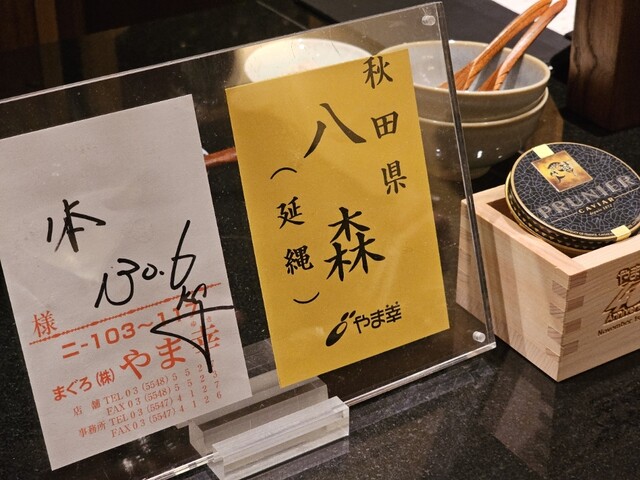 本
130.6
様
ニ-103~11
まぐろ(株) やま幸
店 舗 TEL 03 (5548) 5 5 2
FAX 03 (5548) 5 5 2 3
事務所 TEL 03 (5547) 4 1 2 7
FAX 03 (5547) 4 1 2 6
秋田県
八森
(延縄)
やま幸
PRUNIER
CAVIAR
November